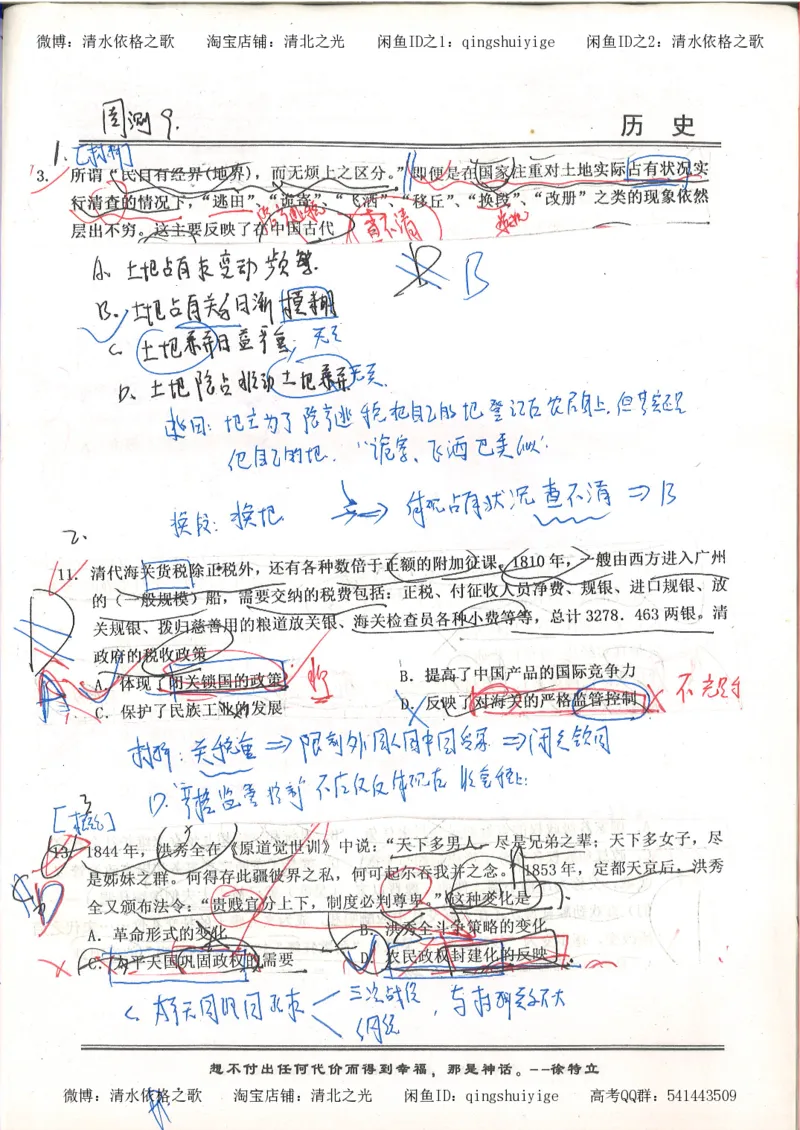 微博：清水依格之歌 淘宝店铺：清北之光 闲鱼ID之1：qingshuiyige 闲鱼ID之2：清水依格之歌
周测9.
历 史
1.[材料]
3. 所谓“民田有经界(地界)，而无烦上之区分。”即便是在国家注重对土地实际占有状况实
行清查的情况下，“逃田”、“诡寄”、“飞洒”、“移丘”、“换段”、“改册”之类的现象依然
层出不穷。这主要反映了在中国古代
查不清
A. 土地占有永变动频繁.
B
B. 土地占有关系日渐模糊
C. 土地兼并日益严重; 无关
D. 土地隐占推动土地兼并 无关.
逃田: 地主为了隐/逃税把自己的地登记在农户身上,但其实还是
他自己的地. “诡寄、飞洒也类似”.
换段: 换地 => 体现占有状况查不清 => B
2.
11. 清代海关货税除正税外，还有各种数倍于正额的附加征课。1810年，一艘由西方进入广州
的（一般规模）船，需要交纳的税费包括：正税、付征收人员净费、规银、进口规银、放
关规银、拨归慈善用的粮道放关银、海关检查员各种小费等等，总计3278．463两银。清
政府的税收政策
A. 体现了闭关锁国的政策
B. 提高了中国产品的国际竞争力
C. 保护了民族工业的发展
D. 反映了对海关的严格监管控制
材料: 关税重 => 限制外国人同中国贸易 => 闭关锁国
D. “严格监管控制”不应仅仅体现在收重税上
3
13. 1844年，洪秀全在《原道觉世训》中说：“天下多男人，尽是兄弟之辈；天下多女子，尽
是姊妹之群。何得存此疆彼界之私，何可起尔吞我并之念。”1853年，定都天京后，洪秀
全又颁布法令：“贵贱宜分上下，制度必判尊卑。”这种变化是
A. 革命形式的变化
B. 洪秀全斗争策略的变化
C. 太平天国巩固政权的需要
D. 农民政权封建化的反映
想不付出任何代价而得到幸福，那是神话。--徐特立
微博：清水依格之歌 淘宝店铺：清北之光 闲鱼ID：qingshuiyige 高考QQ群：541443509